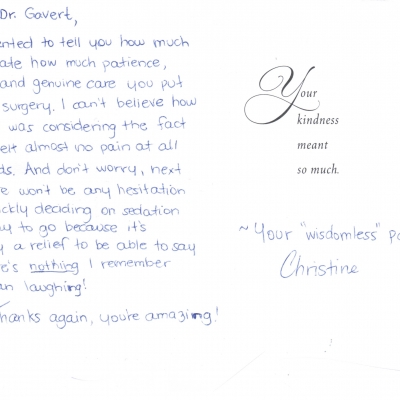 Dr. Gavert,
nted to tell you how much
ate how much patience,
and genuine care you put
surgery. I can't believe how
was considering the fact
elt almost no pain at all
ds. And don't worry, next
e won't be any hesitation
ckly deciding on sedation
ay to go because it's
y a relief to be able to say
e's nothing I remember
an laughing!
hanks again, you're amazing!
Your
kindness
meant
so much.
~Your "wisdomless" pa
Christine